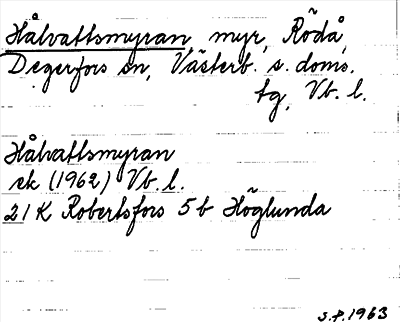 Hålvattsmyran, myr, Rödå,
Degerfors sn, Västerb. s. doms.
tg, Vb. l.
Hålvattsmyran
ek (1962) Vb. l.
21 K Robertsfors 5b Höglunda
S.P. 1963